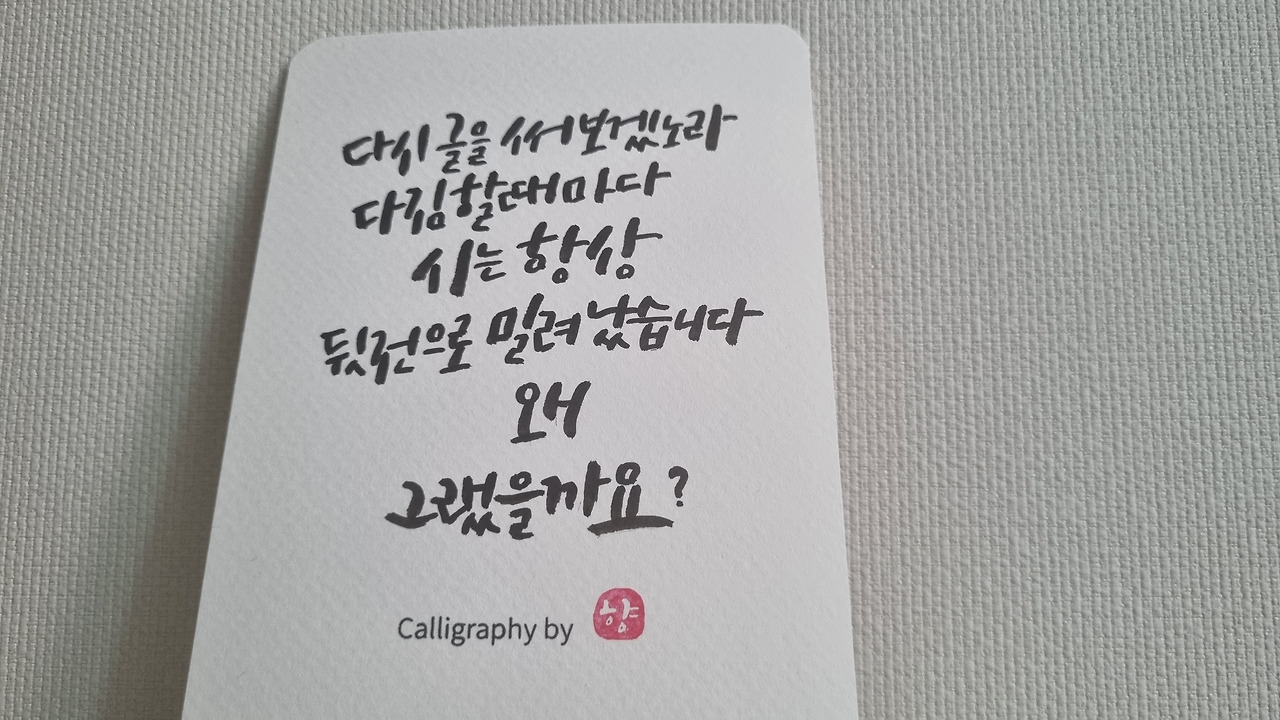 다시 글을 써보겠노라
다짐할때마다
시는 항상
뒷전으로 밀려났습니다
왜
그랬을까요?
Calligraphy by 향